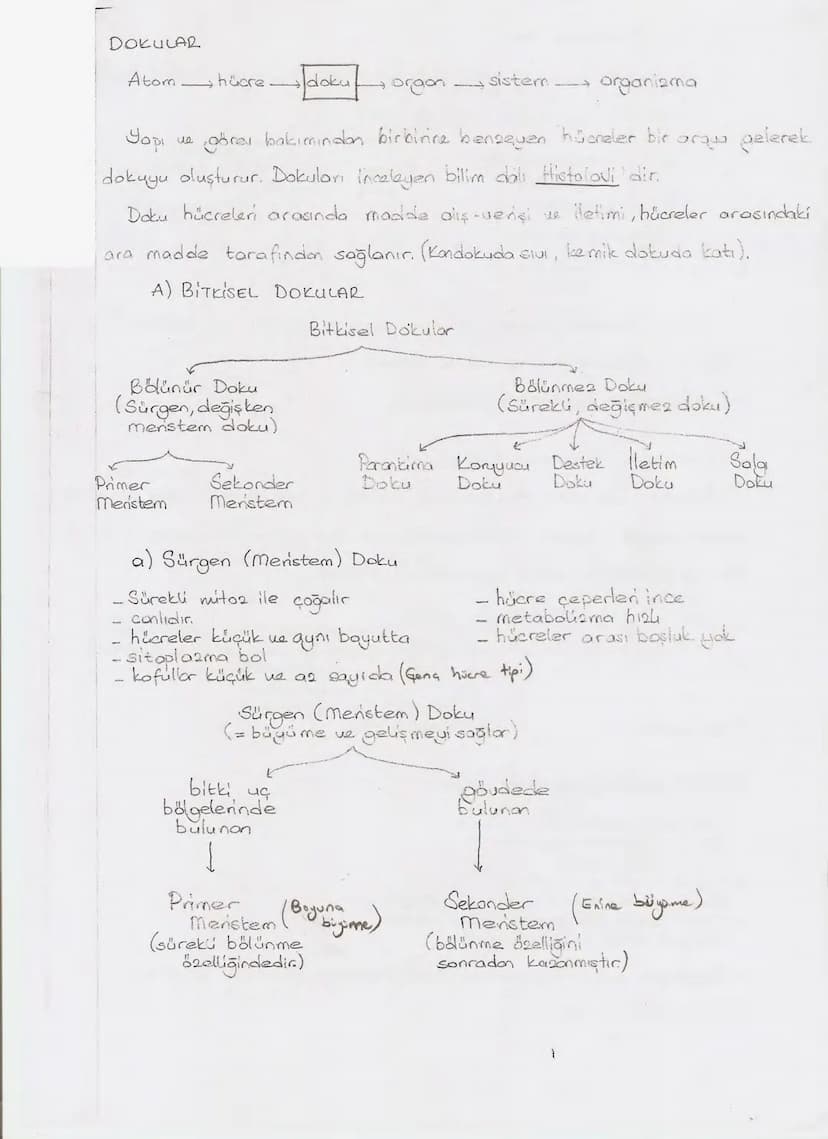 DOKULAR
Atom → hücre → doku → organ → sistem → organizma
Yapı ve görev bakımından birbirine benzeyen hücreler bir araya gelerek
dokuyu oluşturur. Dokuları inceleyen bilim dalı Histoloji'dir.
Doku hücreleri arasında madde alış-verişi ve iletimi, hücreler arasındaki
ara madde tarafından sağlanır. (Kandokuda sıvı, kemik dokuda katı).
A) BİTKİSEL DOKULAR
Bitkisel Dokular
Bölünür Doku
(Sürgen, değişken
meristem doku)
Bölünmez Doku
(Sürekli, değişmez doku)
Primer
Meristem
Sekonder
Meristem
Parankima
Doku
Koruyucu
Doku
Destek
Doku
İletim
Doku
Salgı
Doku
a) Sürgen (Meristem) Doku
- Sürekli mitoz ile çoğalır
- canlıdır.
- hücreler küçük ve aynı boyutta
- sitoplazma bol
- kofullar küçük ve az sayıda (Genç hücre tipi)
- hücre çeperleri ince
- metabolizma hızlı
- hücreler arası boşluk yok
Sürgen (Meristem) Doku
(= büyüme ve gelişmeyi sağlar)
bitki uç
bölgelerinde
bulunan
gövdede
bulunan
Primer
Meristem
(Boyuna
büyüme)
(sürekli bölünme
özelliğindedir.)
Sekonder
Meristem
(Enine büyüme)
(bölünme özelliğini
sonradan kazanmıştır.)
1